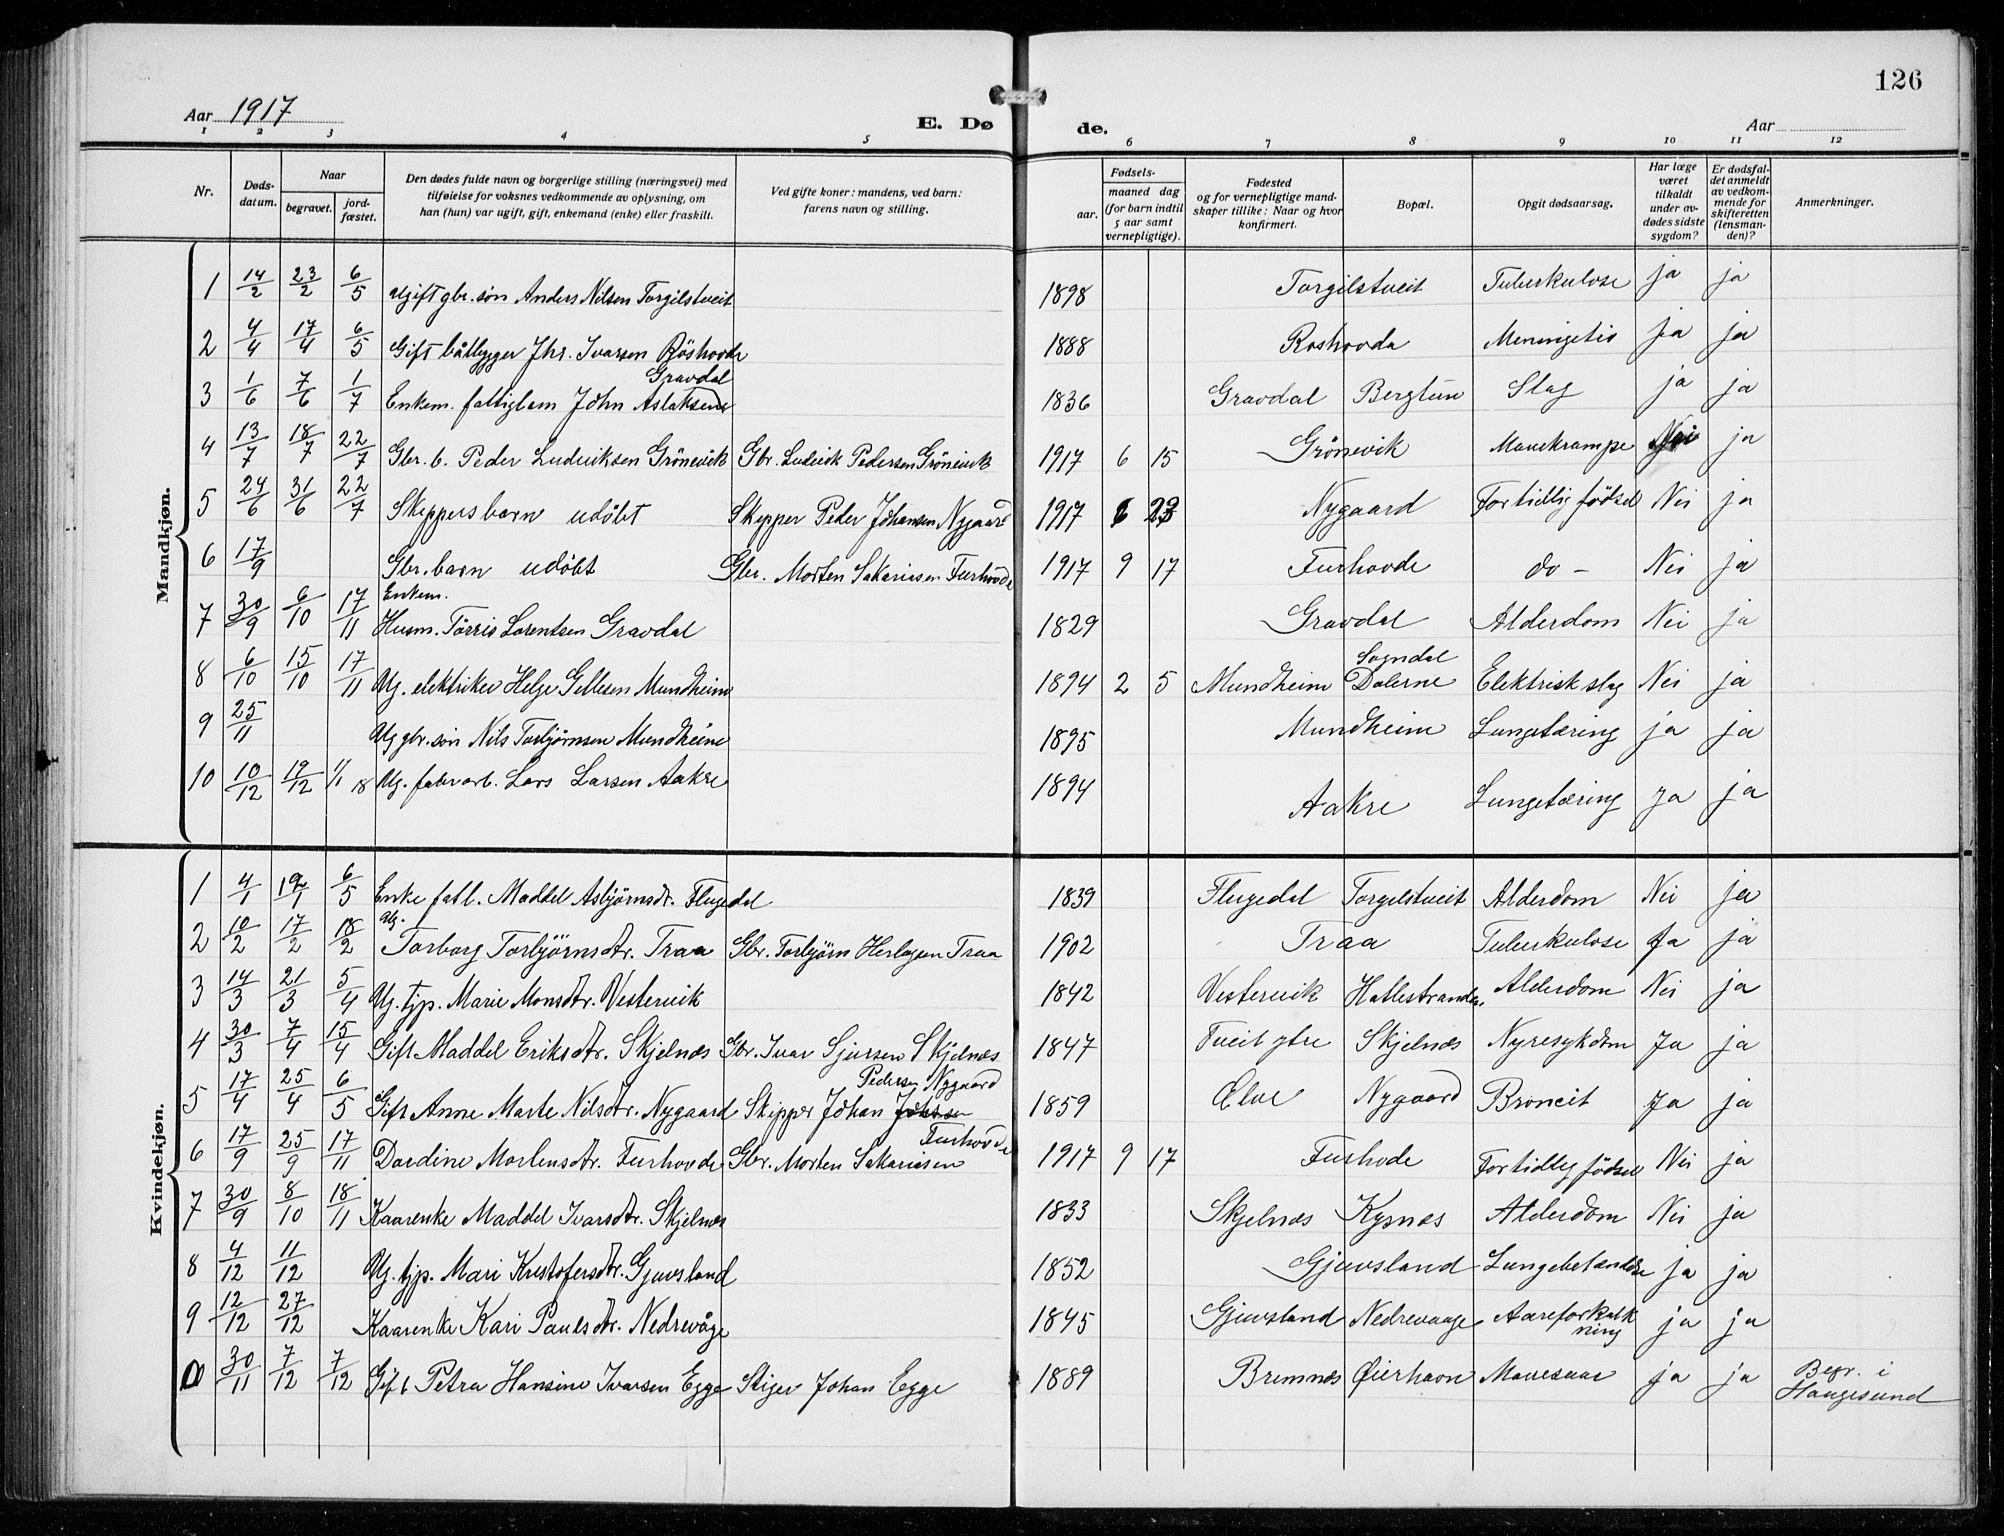 126
Aar 1917
E. Dø de.
Aar
1 2 3 4 5 6 7 8 9 10 11 12
Nr.
Døds-datum.
Naar
begravet.
jord-fæstet.
Den dødes fulde navn og borgerlige stilling (næringsvei) med tilføielse for voksnes vedkommende av oplysning, om han (hun) var ugift, gift, enkemand (enke) eller fraskilt.
Ved gifte koner: mandens, ved barn: farens navn og stilling.
Fødsels-
aar.
maaned dag (for barn indtil 5 aar samt vernepligtige).
Fødested og for vernepligtige mand-skaper tillike: Naar og hvor konfirmert.
Bopæl.
Opgit dødsaarsag.
Har læge været tilkaldt under av-dødes sidste sygdom?
Er dødsfal-det anmeldt av vedkom-mende for skifteretten (lensman-den)?
Anmerkninger.
Mandkjøn.
1 14/2 23/2 6/5 Ugift gbr. søn Anders Nilsen Torgilstveit 1898 Torgilstveit Tuberkulose ja ja
2 4/4 17/4 6/5 Gift båtbygger Jhs. Ivarsen Röshovde 1888 Roshovda Meningetis ja ja
3 1/6 7/6 1/7 Enkem. fattiglem John Aslaksen Gravdal 1836 Gravdal Bergtun Slag ja ja
4 13/7 18/7 22/7 Gbr. b. Peder Ludviksen Grönevik Gbr. Ludvik Pedersen Grönevik 1917 6 15 Grönevik Mavekrampe Nei ja
5 24/6 31/6 22/7 Skippers barn udöbt Skipper Peder Johansen Nygaard 1917 6 23 Nygaard For tidlig födsel Nei ja
6 17/9 Gbr. barn udöbt Gbr. Morten Sakariasen Furhovde 1917 9 17 Furhovde do - Nei ja
7 30/9 6/10 17/11 Enkem. Husm. Törris Lorentsen Gravdal 1829 Gravdal Alderdom Nei ja
8 6/10 15/10 17/11 Ug. elektriker Helge Gellesen Mundheim 1894 2 5 Mundheim Sogndal Dalerne Elektrisk slag Nei ja
9 25/11 Ug gbr. søn Nils Torbjörnsen Mundheim 1895 Mundheim Lungetæring ja ja
10 10/12 19/12 1/1 18 Ug. fabr arb. Lars Larsen Aakre 1894 Aakre Lungetæring ja ja
Kvindekjøn.
1 4/1 19/1 6/5 Enke fatl. Maddel Asbjørnsdr. Flugedal 1839 Flugedal Torgilstveit Alderdom Nei ja
2 10/2 17/2 18/2 Ug. Torborg Torbjörnsdtr. Traa Gbr. Torbjörn Herlogsen Traa 1902 Traa Tuberkulose Ja ja
3 14/3 21/3 5/4 Ug. tjp. Marie Monsdtr. Vestervik 1842 Vestervik Hattestranden Alderdom Nei ja
4 30/3 7/4 15/4 Gift Maddel Eriksdtr. Skjelnæs Gbr. Ivar Sjursen Skjelnæs 1847 Tveit ytre Skjelnæs Nyresykdom Ja ja
5 17/4 25/4 6/5 Gift Anne Marte Nilsdtr. Nygaard Skipper Johan Pedersen Nygaard 1859 Ølve Nygaard Broncit Ja ja
6 17/9 25/9 17/11 Dardine Mortensdtr. Furhovde Gbr. Morten Sakariasen Furhovde 1917 9 17 Furhode For tidlig födsel Nei ja
7 30/9 8/10 18/11 Kaarenke Maddel Ivarsdtr. Skjelnæs 1833 Skjelnæs Kysnæs Alderdom Nei ja
8 4/12 11/12 Ug. tjp. Mari Kristofersdtr. Gjuvsland 1852 Gjuvsland Lungebetændelse ja ja
9 12/12 27/12 Kaarenke Kari Paulsdtr. Nedrevåge 1845 Gjuvsland Nedrevaage Aareforkalkning ja ja
10 30/11 7/12 7/12 Gift Petra Hansine Ivarsen Egge Stiger Johan Egge 1889 Bremnæs Øierhavn Mavesaar ja ja Begr. i Haugesund